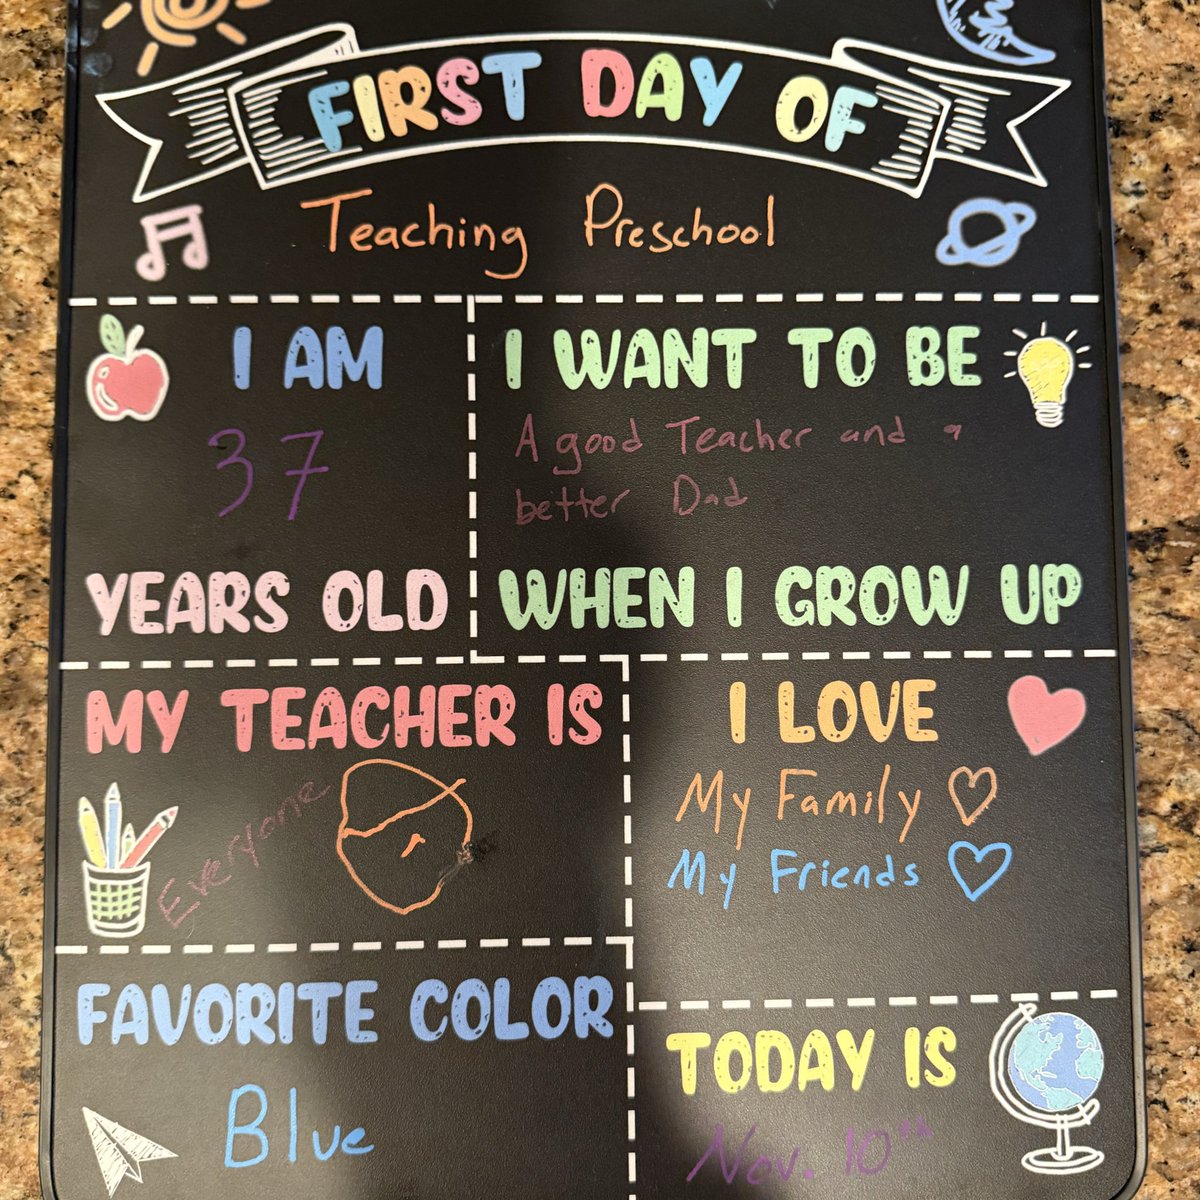 FIRST DAY OF
Teaching Preschool
I AM
37
YEARS OLD
I WANT TO BE
A good Teacher and a
better Dad
WHEN I GROW UP
MY TEACHER IS
Everyone
I LOVE
My Family
My Friends
FAVORITE COLOR
Blue
TODAY IS
Nov. 10th